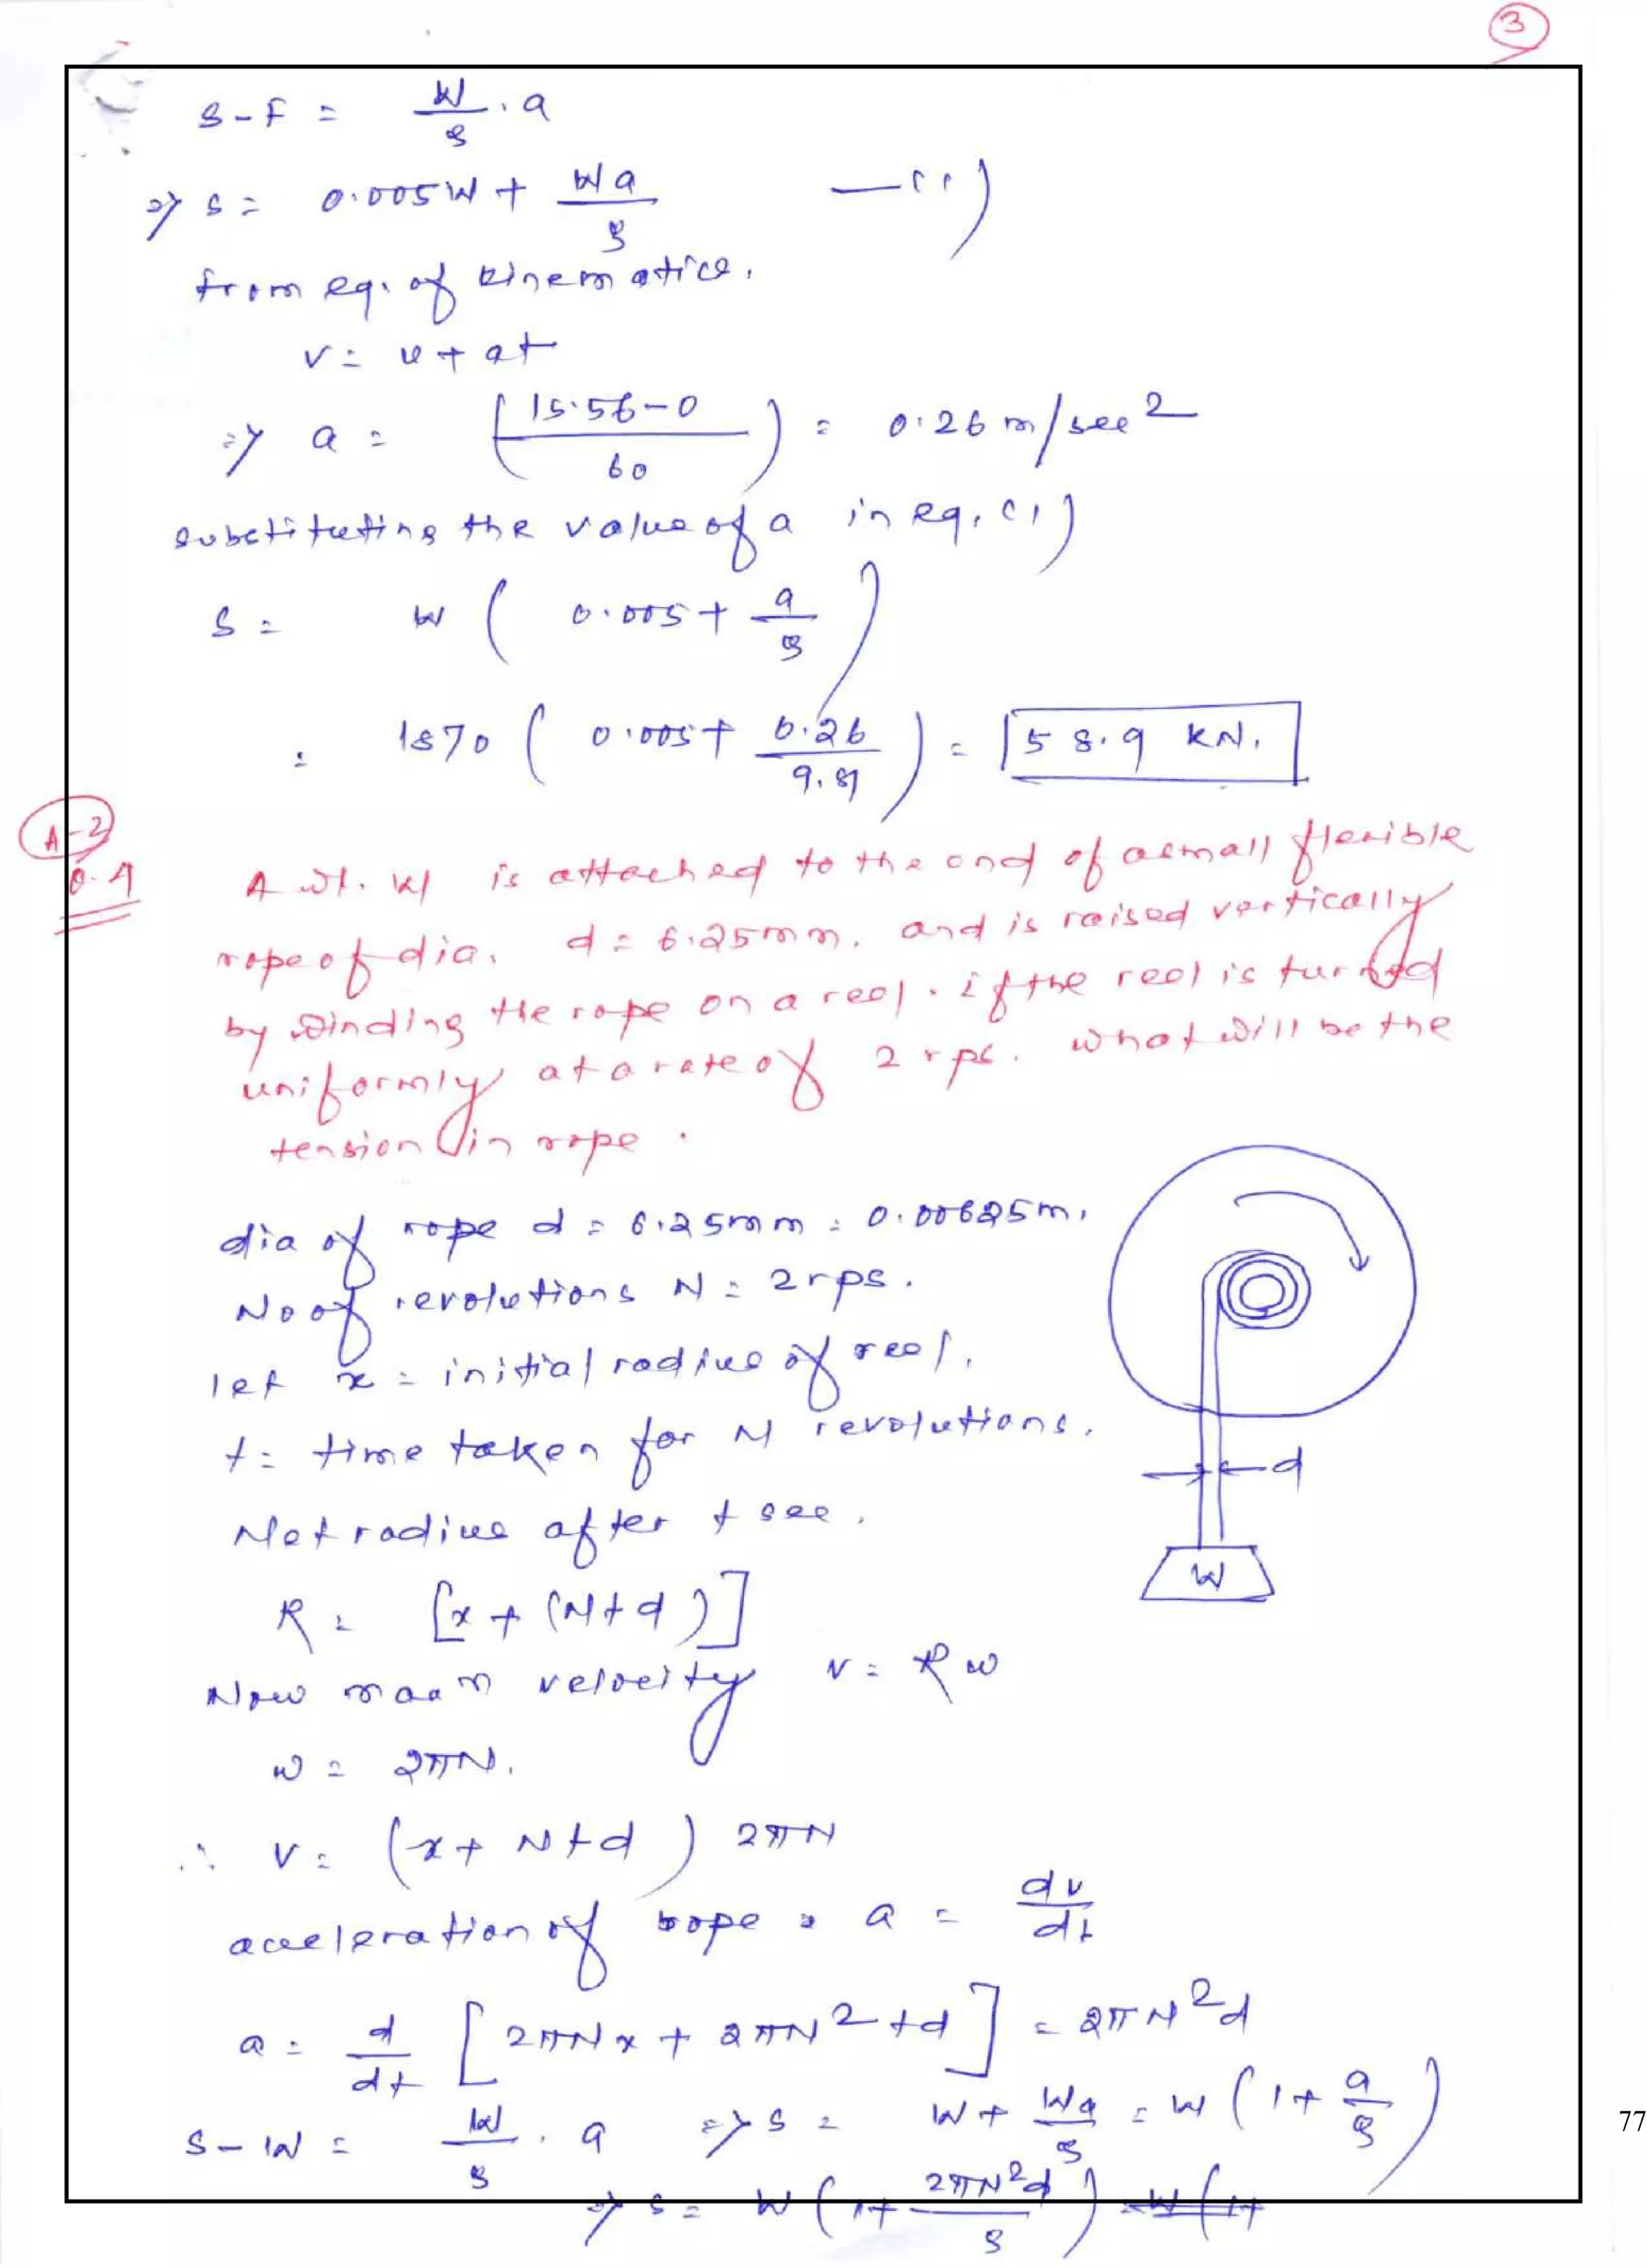 3
S - F = W/g . a
⇒ S = 0.005W + Wa/g —(1)
from eq. of kinematics,
v = u + at
⇒ a = (15.56-0/60) = 0.26 m/sec²
substituting the value of a in eq. (1)
S = W (0.005 + a/g)
= 1870 (0.005 + 0.26/9.81) = 58.9 KN.
A-2
Q.4 A wt. W is attached to the end of a small flexible
rope of dia. d = 6.25mm. and is raised vertically
by winding the rope on a reel. if the reel is turned
uniformly at a rate of 2 rps. what will be the
tension in rope.
dia of rope d = 6.25mm = 0.00625m.
No of revolutions N = 2rps.
let x = initial radius of reel.
t = time taken for N revolutions.
Net radius after t sec.
R = [x + (Ntd)]
Now mean velocity v = Rω
ω = 2πN.
∴ v = (x + Ntd) 2πN
acceleration of rope, a = dv/dt
a = d/dt [2πNx + 2πN²td] = 2πN²d
S - W = W/g . a ⇒ S = W + Wa/g = W (1 + a/g)
⇒ S = W (1 + 2πN²d/g) = W (1+
d
W
77